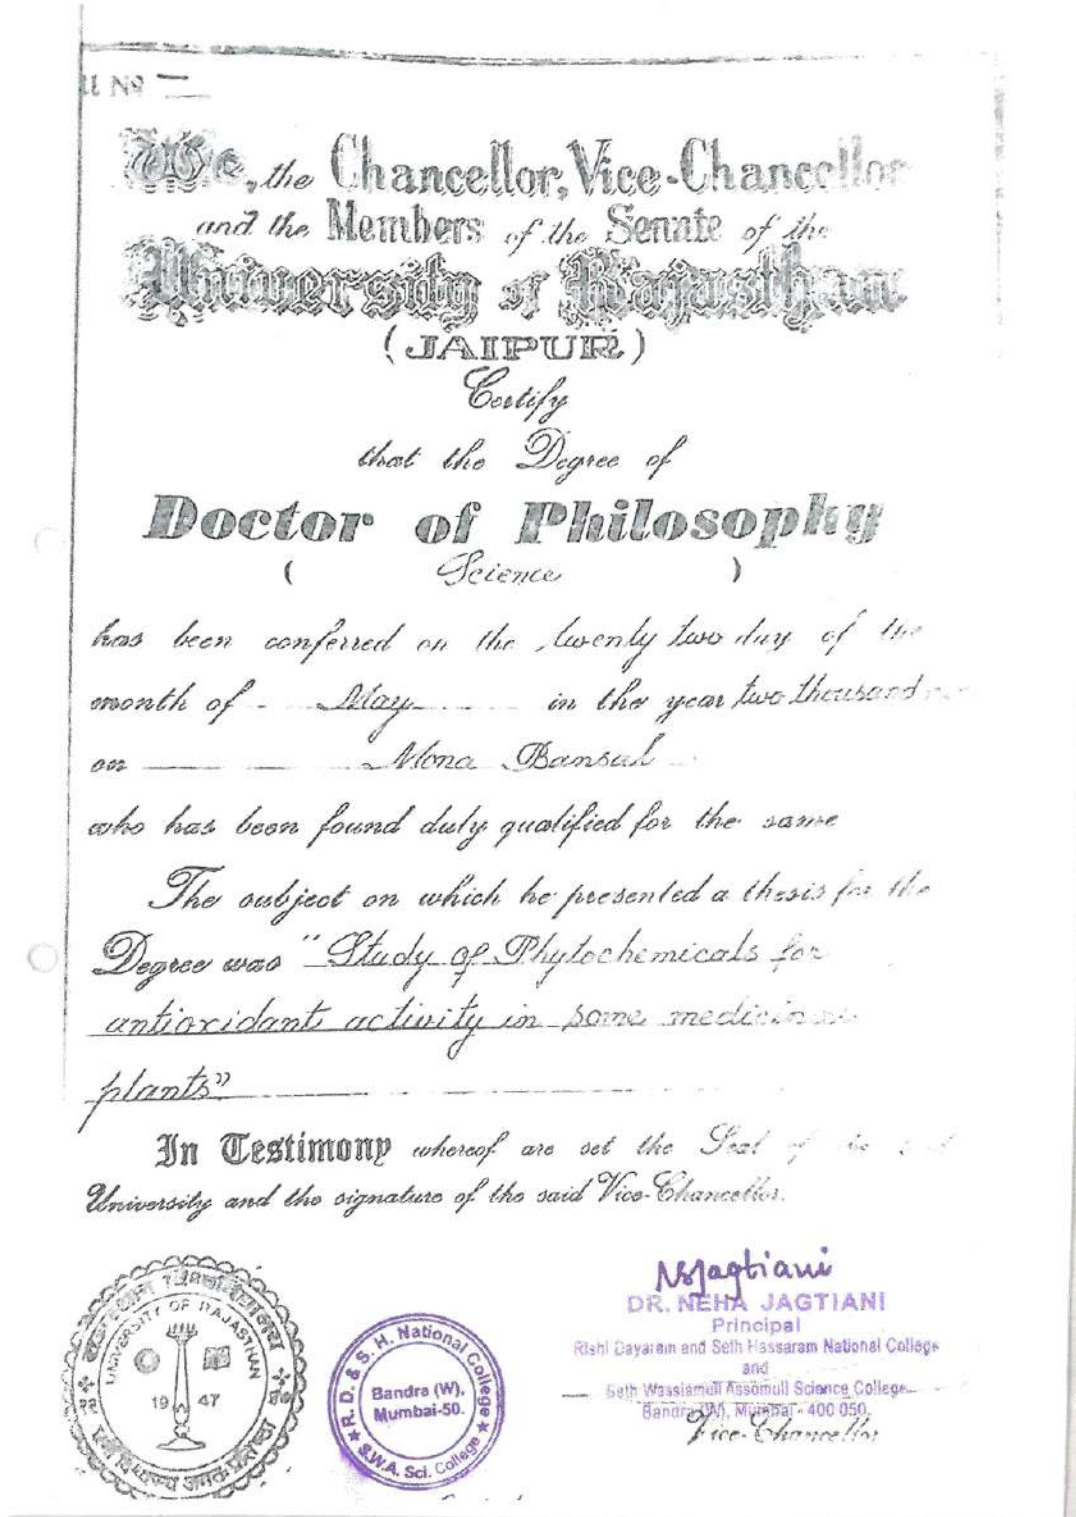 ll No
We, the Chancellor, Vice-Chancellor
and the Members of the Senate of the
University of Rajasthan
(JAIPUR)
Certify
that the Degree of
Doctor of Philosophy
( Science )
has been conferred on the twenty two day of the
month of May in the year two thousand
on Mona Bansal
who has been found duly qualified for the same
The subject on which he presented a thesis for the
Degree was "Study of Phytochemicals for
antioxidant activity in some
plants"
In Testimony whereof are set the Seal of
University and the signature of the said Vice-Chancellor.
UNIVERSITY OF RAJASTHAN
1947
R. D. & S. H. National College
Bandra (W),
Mumbai-50.
S.W.A. Sci. College
NSJagtiani
DR. NEHA JAGTIANI
Principal
Rishi Dayaram and Seth Hassaram National College
and
Seth Wassiamull Assomull Science College
Bandra (W), Mumbai - 400 050.
Vice-Chancellor